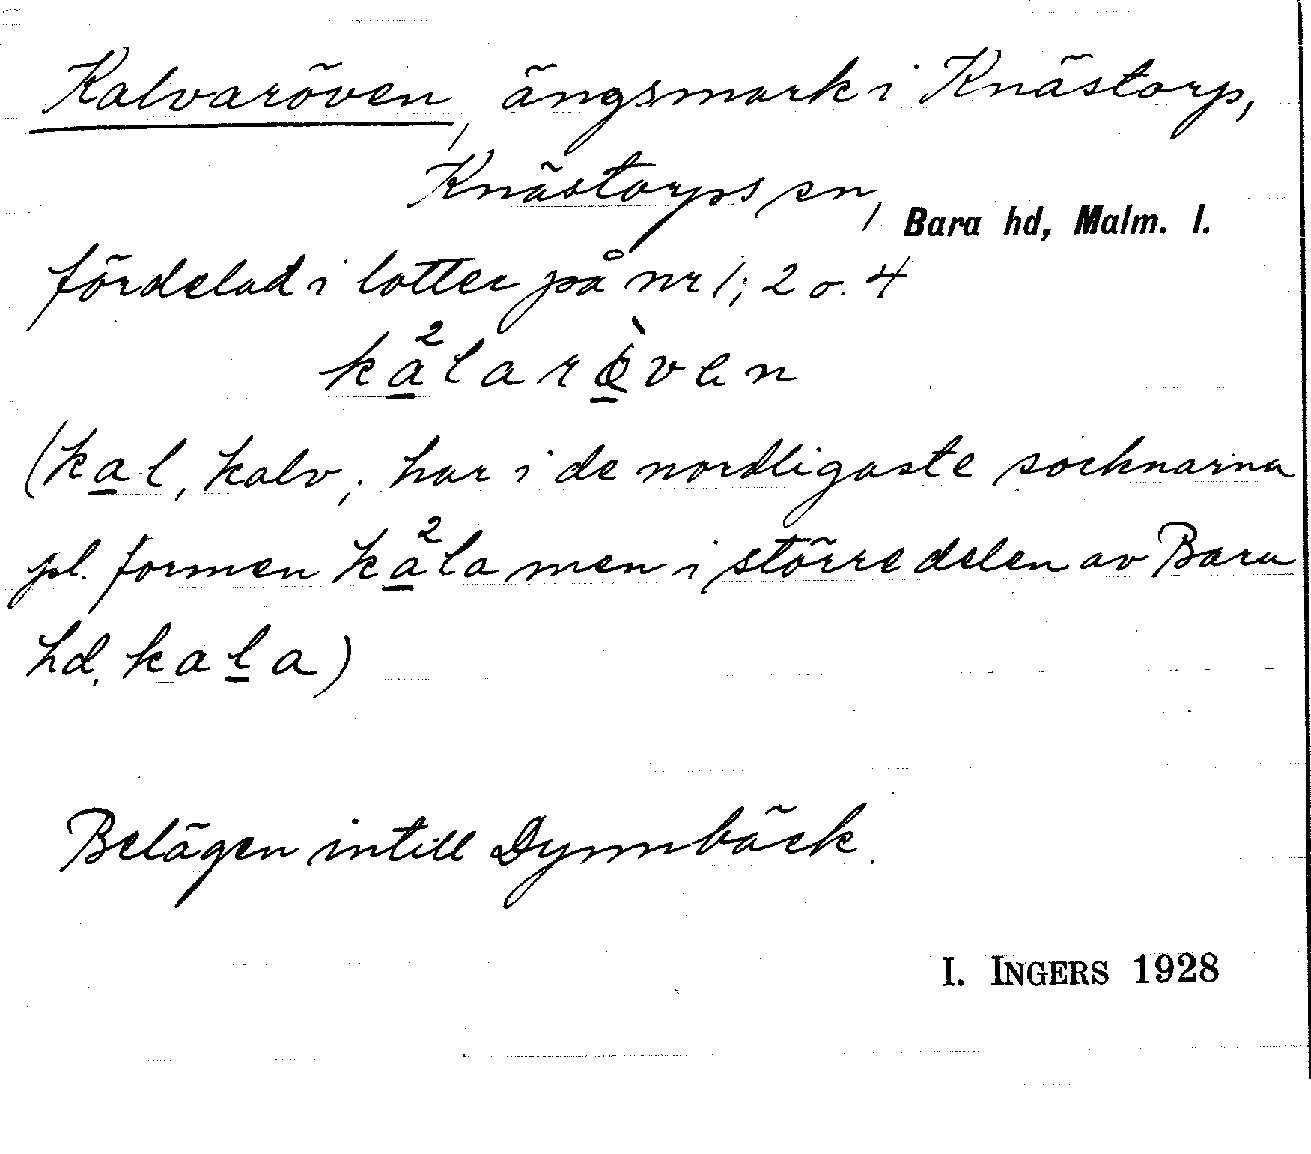 Kalvaröven, ängsmark i Knästorp,
Knästorps sn, Bara hd, Malm. l.
fördelad i lotter på nr 1; 2 o. 4
ka̲²larø̲̀ven
(ka̲l, kalv; har i de nordligaste socknarna
pl. formen ka̲²la men i större delen av Bara
hd. kal̲a)
Belägen intill Dynnbäck.
I. INGERS 1928